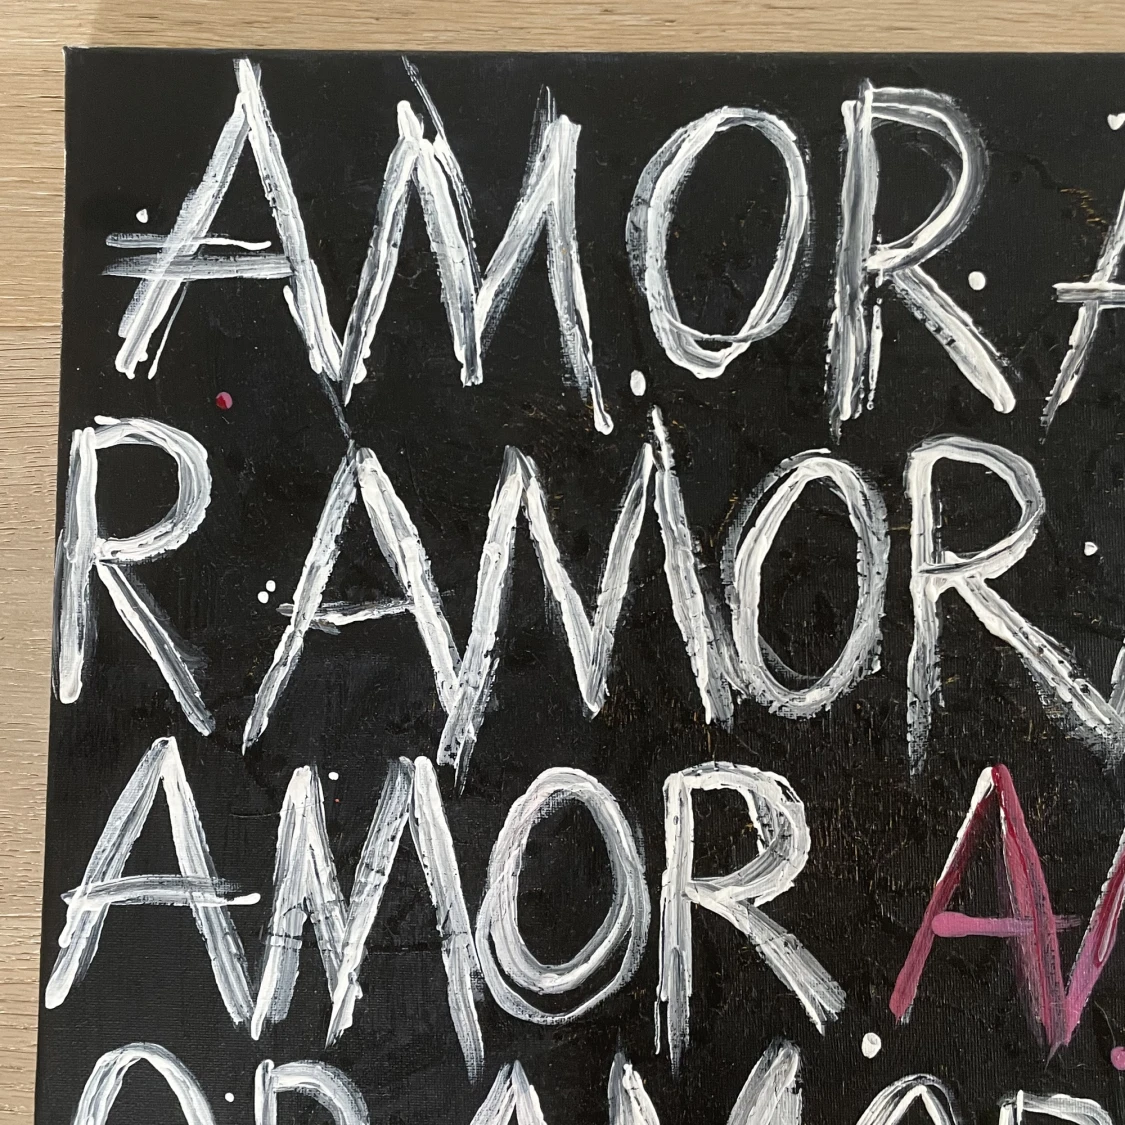 AMOR A
RAMOR
AMOR AM
OR AMOR